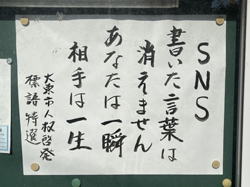 SNS
書いた言葉は
消えません
あなたは一瞬
相手は一生
大東市人权啓発
標語 特選